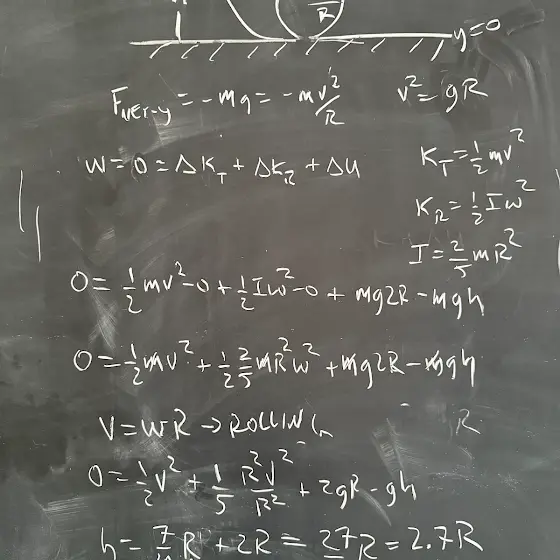 R y=0
F_NET-y = -mg = -mv²/R v² = gR
W = 0 = ΔK_T + ΔK_R + ΔU K_T = ½mv²
K_R = ½Iω²
I = 2/5 mR²
0 = ½mv² - 0 + ½Iω² - 0 + mg2R - mgh
0 = ½mv² + ½ 2/5 mR²ω² + mg2R - mgh
V = WR → ROLLING R
0 = ½v² + 1/5 R²V²/R² + 2gR - gh
h = 7/10 R + 2R = 27R = 2.7R